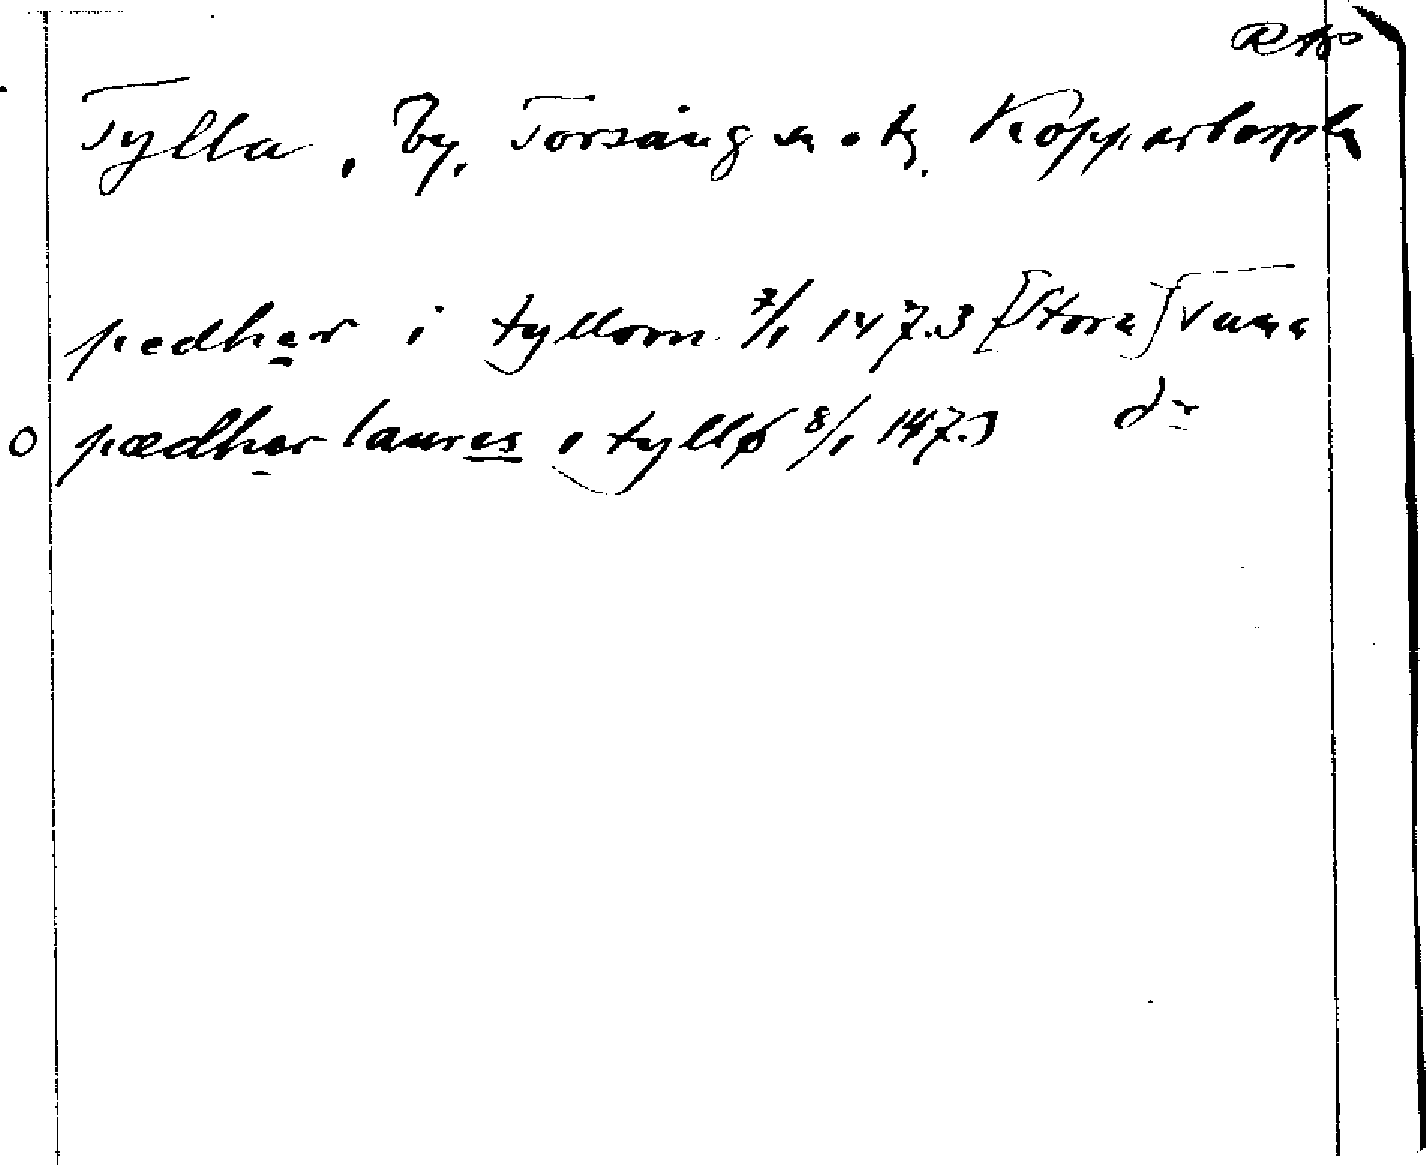 Tylla, By, Torsång sn o. tg. Kopparbergs l.
pedher i tyllom 7/1 1473 [Stora] Tuna
0 pædher laures i tyllø 8/1 1473 do